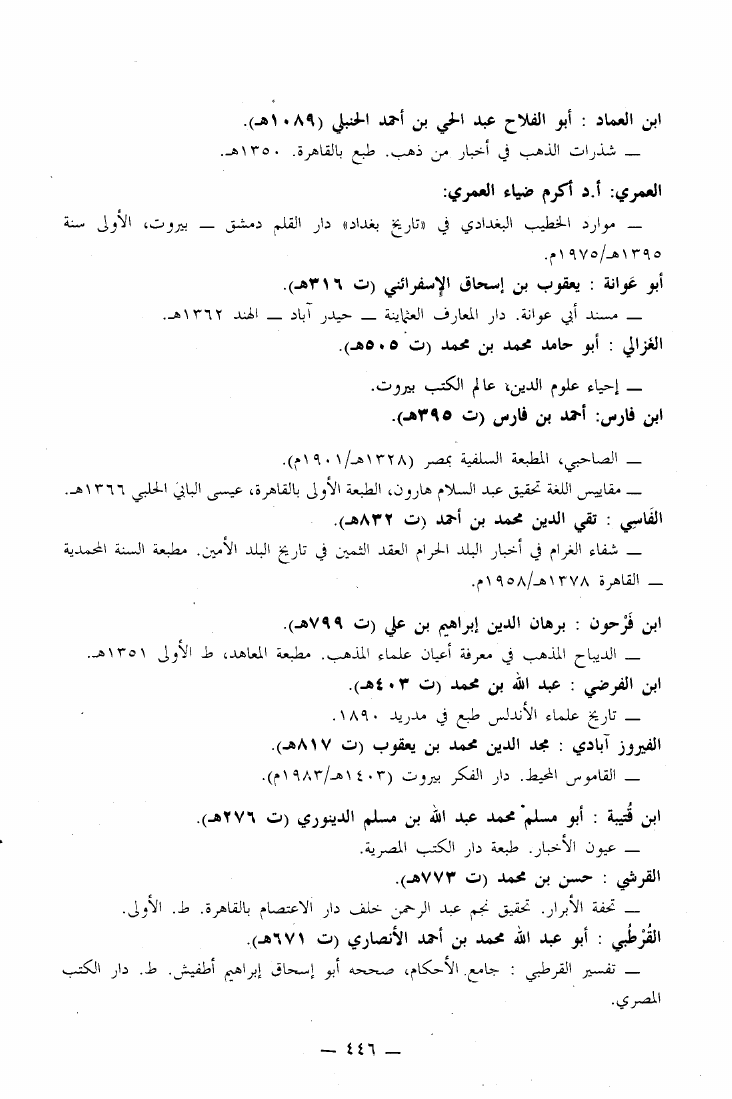 ابن العماد : أبو الفلاح عبد الحي بن أحمد الحنبلي (١٠٨٩هـ).
— شذرات الذهب في أخبار من ذهب. طبع بالقاهرة. ١٣٥٠هـ.
العمري: أ.د أكرم ضياء العمري:
— موارد الخطيب البغدادي في «تاريخ بغداد» دار القلم دمشق — بيروت، الأولى سنة
١٣٩٥هـ/١٩٧٥م.
أبو عَوانة : يعقوب بن إسحاق الإسفرائني (ت ٣١٦هـ).
— مسند أبي عوانة. دار المعارف العثمانية — حيدر آباد — الهند ١٣٦٢هـ.
الغزالي : أبو حامد محمد بن محمد (ت ٥٠٥هـ).
— إحياء علوم الدين، عالم الكتب بيروت.
ابن فارس: أحمد بن فارس (ت ٣٩٥هـ).
— الصاحبي، المطبعة السلفية بمصر (١٣٢٨هـ/١٩٠١م).
— مقاييس اللغة تحقيق عبد السلام هارون، الطبعة الأولى بالقاهرة، عيسى البابي الحلبي ١٣٦٦هـ.
الفَاسِي : تقي الدين محمد بن أحمد (ت ٨٣٢هـ).
— شفاء الغرام في أخبار البلد الحرام العقد الثمين في تاريخ البلد الأمين. مطبعة السنة المحمدية
— القاهرة ١٣٧٨هـ/١٩٥٨م.
ابن فَرْحون : برهان الدين إبراهيم بن علي (ت ٧٩٩هـ).
— الديباج المذهب في معرفة أعيان علماء المذهب. مطبعة المعاهد، ط الأولى ١٣٥١هـ.
ابن الفرضي : عبد الله بن محمد (ت ٤٠٣هـ).
— تاريخ علماء الأندلس طبع في مدريد ١٨٩٠.
الفيروز آبادي : مجد الدين محمد بن يعقوب (ت ٨١٧هـ).
— القاموس المحيط. دار الفكر بيروت (١٤٠٣هـ/١٩٨٣م).
ابن قُتيبة : أبو مسلم محمد عبد الله بن مسلم الدينوري (ت ٢٧٦هـ).
— عيون الأخبار. طبعة دار الكتب المصرية.
القرشي : حسن بن محمد (ت ٧٧٣هـ).
— تحفة الأبرار. تحقيق نجم عبد الرحمن خلف دار الاعتصام بالقاهرة. ط. الأولى.
القُرْطُبي : أبو عبد الله محمد بن أحمد الأنصاري (ت ٦٧١هـ).
— تفسير القرطبي : جامع الأحكام، صححه أبو إسحاق إبراهيم أطفيش. ط. دار الكتب
المصري.
— ٤٤٦ —